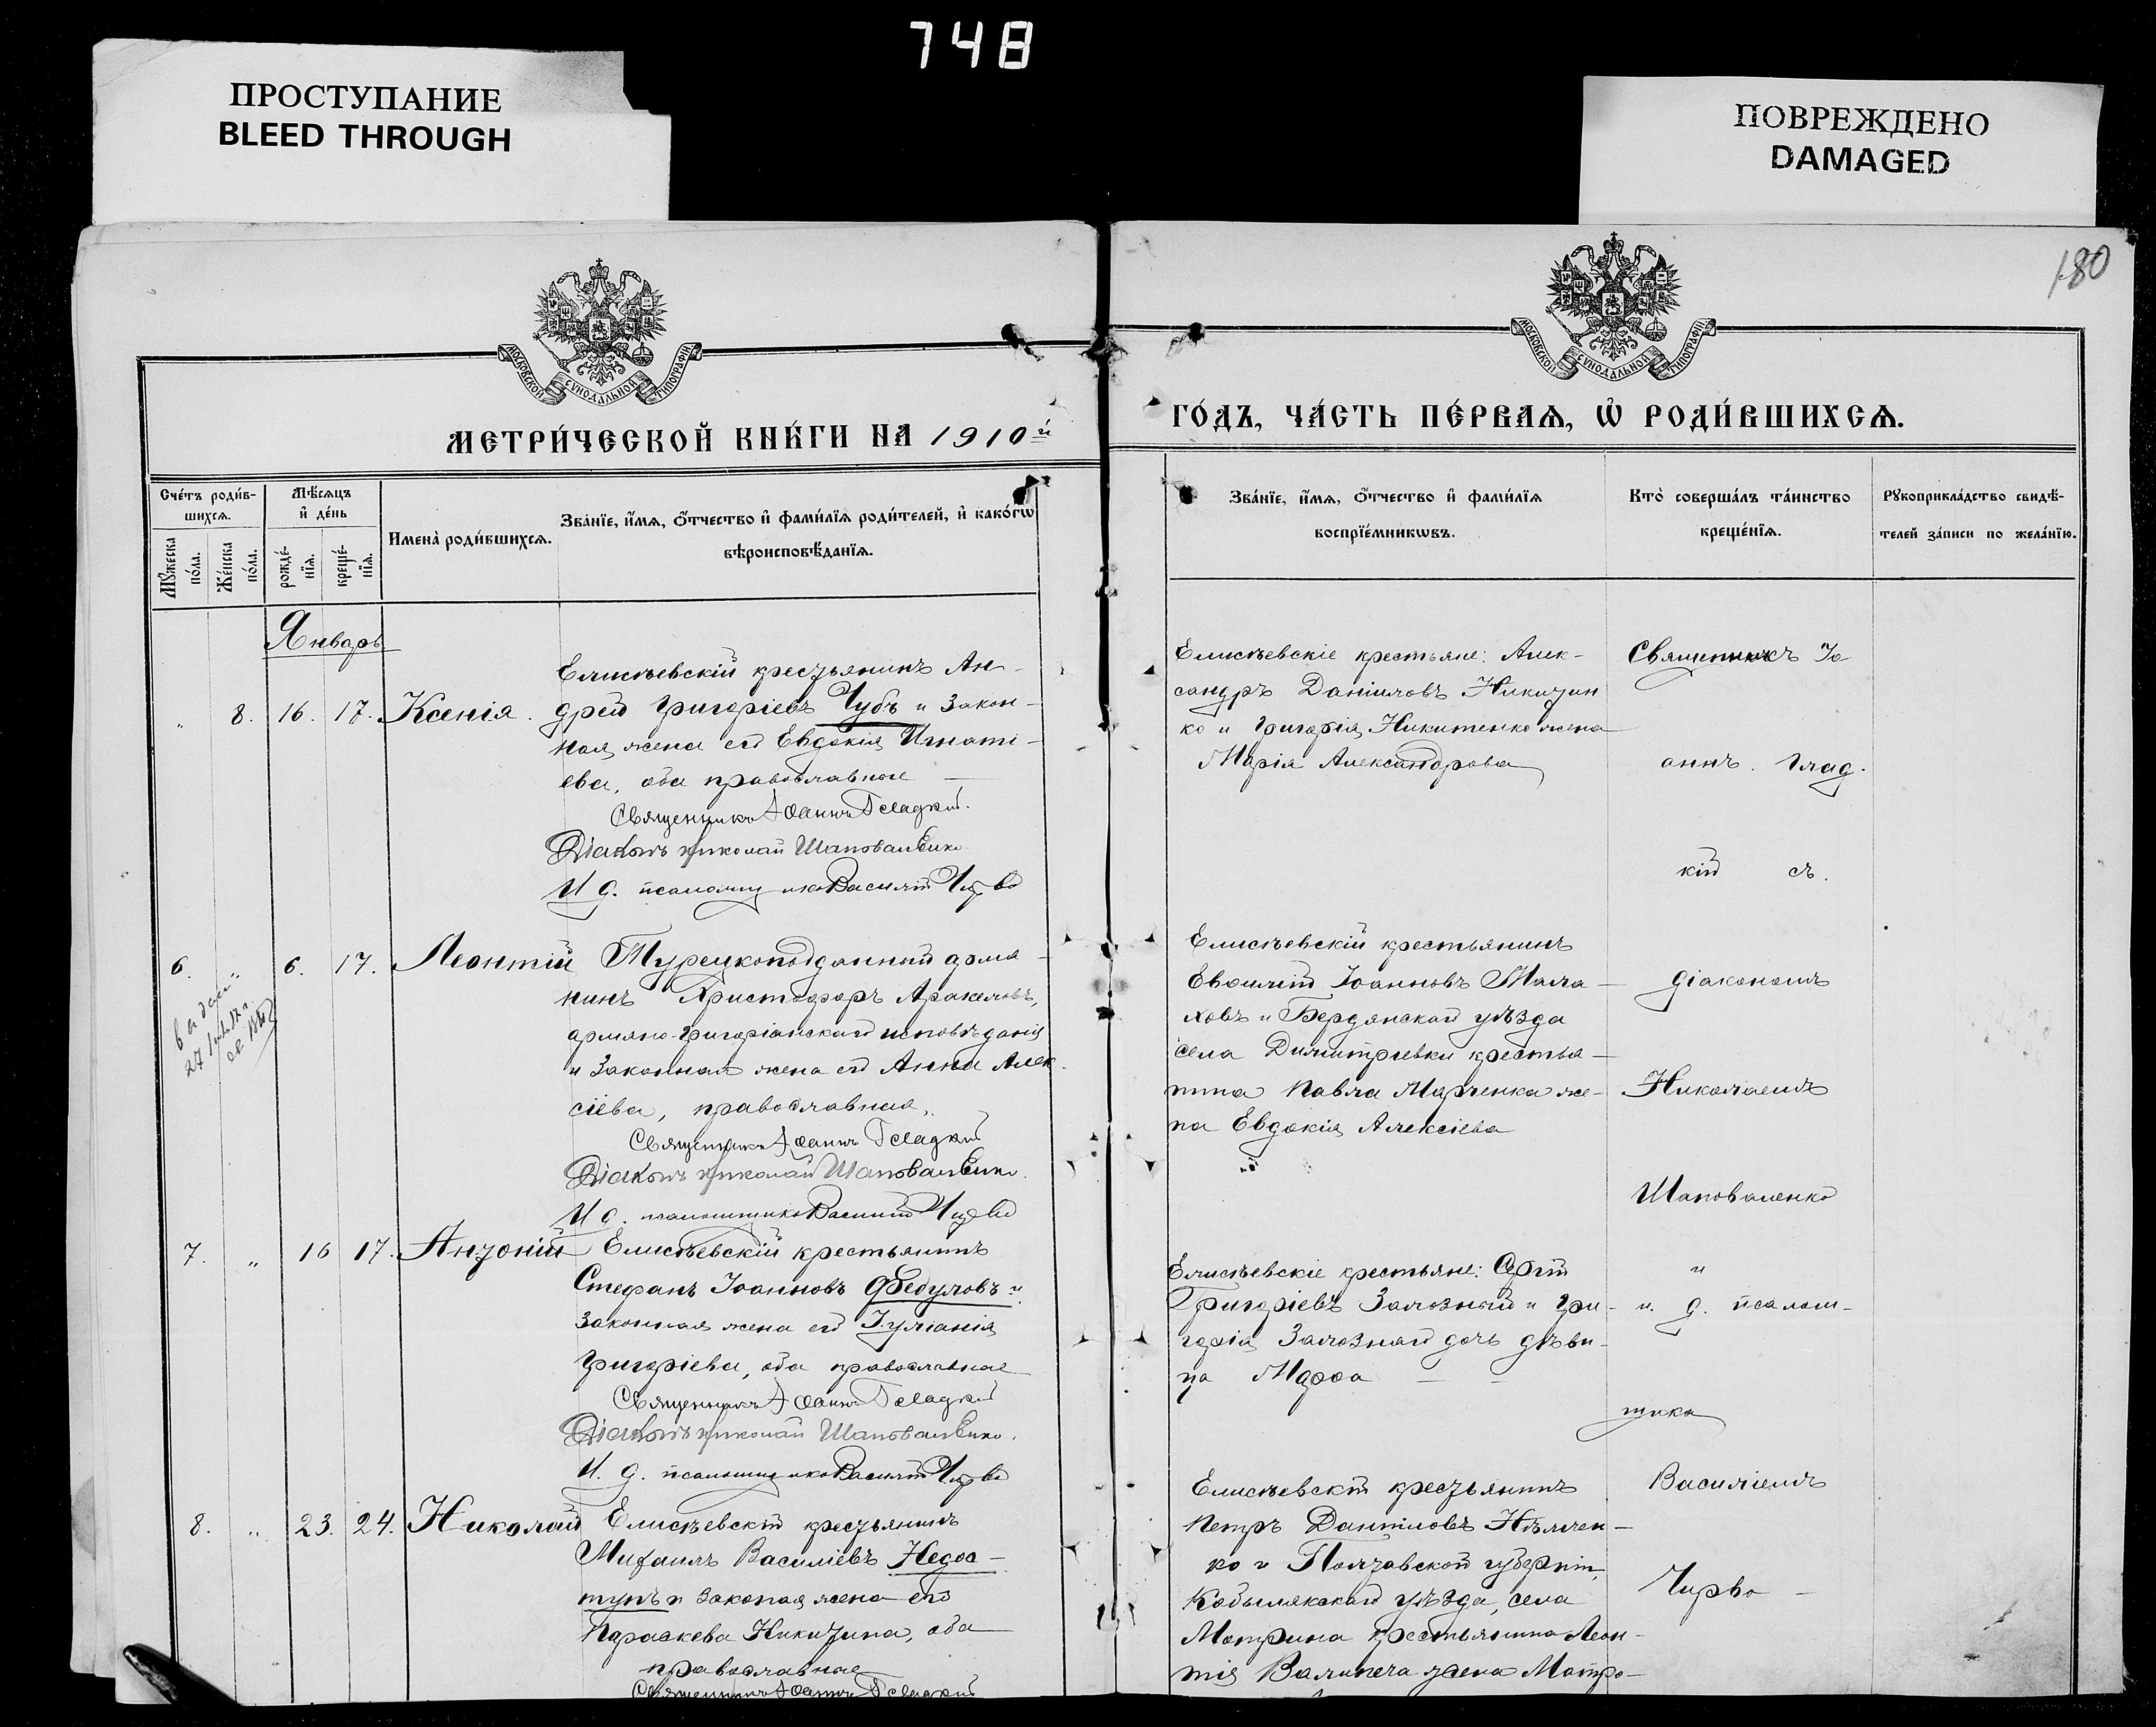 748
ПРОСТУПАНИЕ
BLEED THROUGH
ПОВРЕЖДЕНО
DAMAGED
180
МОСКОВСКОЙ СУНОДАЛЬНОЙ ТИПОГРАФІИ
МОСКОВСКОЙ СУНОДАЛЬНОЙ ТИПОГРАФІИ
МЕТРИ́ЧЕСКОЙ КНИ́ГИ НА 1910й
ГО́ДЪ, ЧА́СТЬ ПЕ́РВАѦ, Ѡ҆ РОДИ́ВШИХСѦ.
Сче́тъ роди́в-
шихсѧ.
Мꙋжеска по́ла.
Же́нска по́ла.
Мѣ́сѧцъ
и҆ де́нь
рожде́-
нїѧ.
креще́-
нїѧ.
Имена̀ роди́вшихсѧ.
Зва́нїе, и҆́мѧ, ѻ҆́тчество и҆ фами́лїѧ роди́телей, и҆ како́гѡ
вѣроисповѣ́данїѧ.
Зва́нїе, и҆́мѧ, ѻ҆́тчество и҆ фами́лїѧ
воспрїе́мникѡвъ.
Кто̀ соверша́лъ та́инство
креще́нїѧ.
Рꙋкоприкла́дство свидѣ́-
телей за́писи по жела́нїю.
Январь
" 8. 16. 17. Ксенія.
Елисѣевскій крестьянинъ Ан-
дрей Григоріевъ Чубъ и закон-
ная жена его Евдокія Игнаті-
ева, оба православные
Священникъ Іоаннъ Гладкій.
Діаконъ Николай Шаповаленко
И д. псаломщика Василій Чирво
Елисѣевскіе крестьяне: Алек-
сандръ Даніиловъ Никитин
ко и Григорія Никитенко жена
Марія Александрова
Священникъ Іо
аннъ Глад.
кій съ.
6. " 6. 17. Леонтій
Турецкоподданный армя-
нинъ Христофоръ Аракеловъ,
армяно-григоріанскаго исповѣданія
и законная жена его Анна Алек-
сіева, православная.
Священникъ Іоаннъ Гладкій
Діаконъ Николай Шаповаленко.
И д. псаломщика Василій Чирво
Елисѣевскій крестьянинъ
Іоанновъ Мала-
ховъ и Бердянскаго уѣзда
села Димитріевки крестья-
нина Павла Марченка же-
на Евдокія Алексіева
діакономъ
Николаемъ
Шаповаленко
7. " 16 17. Антоній
Елисѣевскій крестьянинъ
Стефанъ Іоанновъ Ѳедуловъ и
законная жена его Іуліанія
Григоріева, оба православные
Священникъ Іоаннъ Гладкій
Діаконъ Николай Шаповаленко.
И. д. псаломщика Василій Чирво
Елисѣевскіе крестьяне:
Григоріевъ Залозный и Гри-
горія Залознаго дочь дѣви-
ца Марѳа
и
и. д. псалом-
щика
8. " 23. 24. Николай
Елисѣевскій крестьянинъ
Михаилъ Василіевъ Недос-
тупъ и законая жена его
Параскева Никитина, оба
православные
Священникъ Іоаннъ Гладкій
Елисѣевскій крестьянинъ
Петръ Даніиловъ Нѣмчен-
ко и Полтавской губерніи,
Кобылякскаго уѣзда, села
крестьянина Леон-
тія жена Матро-
Василіемъ
Чирво